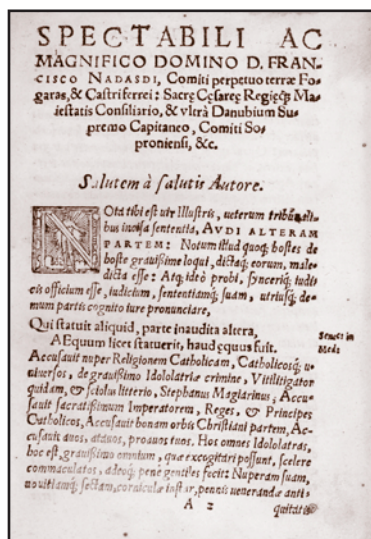 SPECTABILI AC
MAGNIFICO DOMINO D. FRAN-
CISCO NADASDI, Comiti perpetuo terræ Fo-
garas, & Castriferrei: Sacrę Cęsareę Regięq́; Ma-
iestatis Consiliario, & vltrà Danubium Su-
premo Capitaneo, Comiti So-
proniensi, &c.
Salutem à salutis Autore.
NOta tibi est uir Illustris, ueterum tribunali-
bus incisa sententia, AVDI ALTERAM
PARTEM: Notum illud quoq; hostes de
hoste grauißime loqui, dictaq; eorum, male-
dicta esse: Atq; ideò probi, synceriq; iudi-
cis officium esse, iudicium, sententiamq; suam, utriusq; de-
mum partis cognito iure pronunciare,
Qui statuit aliquid, parte inaudita altera,
AEquum licet statuerit, haud ęquus fuit.
Seneca in
Med:
Accusauit nuper Religionem Catholicam, Catholicosq; u-
niuersos, de grauißimo Idololatriæ crimine, Vitilitigator
quidam, & sciolus litterio, Stephanus Magiarinus; Accu-
sauit sacratißimum Imperatorem, Reges, & Principes
Catholicos, Accusauit bonam orbis Christiani partem, Ac-
cusauit auos, atauos, proauos tuos. Hos omnes Idololatras,
hoc est, grauißimo omnium, quæ excogitari possunt, scelere
commaculatos, adeoq; penè gentiles fecit: Nuperam suam,
nouitiamq; sectam, corniculæ instar, pennis uenerandæ anti-
A 2
quitatis